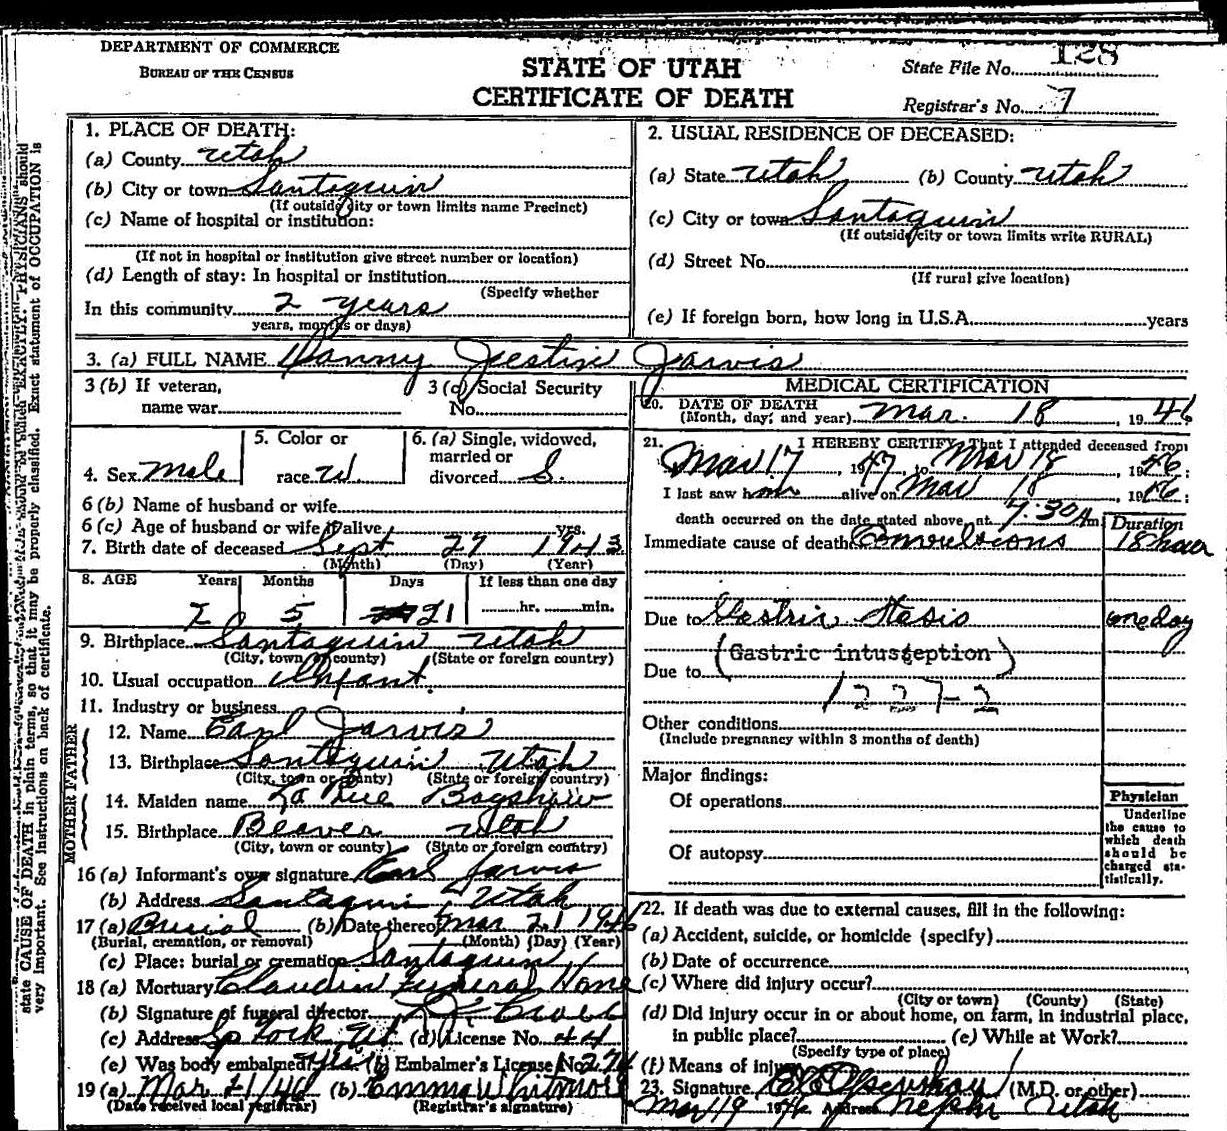 DEPARTMENT OF COMMERCE
BUREAU OF THE CENSUS
STATE OF UTAH
CERTIFICATE OF DEATH
State File No. 128
Registrar's No. 7
1. PLACE OF DEATH:
(a) County Utah
(b) City or town Santaquin
(If outside city or town limits name Precinct)
(c) Name of hospital or institution:
(If not in hospital or institution give street number or location)
(d) Length of stay: In hospital or institution
(Specify whether
In this community 2 years
years, months or days)
2. USUAL RESIDENCE OF DECEASED:
(a) State Utah (b) County Utah
(c) City or town Santaquin
(If outside city or town limits write RURAL)
(d) Street No.
(If rural give location)
(e) If foreign born, how long in U.S.A. years
3. (a) FULL NAME Danny Jestin Jarvis
3 (b) If veteran,
name war
3 (c) Social Security
No.
4. Sex male
5. Color or
race W.
6. (a) Single, widowed,
married or
divorced S.
6 (b) Name of husband or wife
6 (c) Age of husband or wife if alive yrs.
7. Birth date of deceased Sept 27 1943
(Month) (Day) (Year)
8. AGE Years Months Days If less than one day
2 5 21 hr. min.
9. Birthplace Santaquin Utah
(City, town or county) (State or foreign country)
10. Usual occupation Infant
11. Industry or business
FATHER
12. Name Earl Jarvis
13. Birthplace Santaquin Utah
(City, town or county) (State or foreign country)
MOTHER
14. Maiden name La Rue Bagshaw
15. Birthplace Beaver Utah
(City, town or county) (State or foreign country)
16 (a) Informant's own signature Earl Jarvis
(b) Address Santaquin, Utah
17 (a) Burial (b) Date thereof Mar 21 1946
(Burial, cremation, or removal) (Month) (Day) (Year)
(c) Place: burial or cremation Santaquin
18 (a) Mortuary Claudin Funeral Home
(b) Signature of funeral director
(c) Address Sp Fork Ut (d) License No. 44
(e) Was body embalmed? Yes (f) Embalmer's License No. 274
19 (a) Mar 21/46 (b) Emma Whitmore
(Date received local registrar) (Registrar's signature)
MEDICAL CERTIFICATION
20. DATE OF DEATH
(Month, day, and year) Mar. 18, 1946
21. I HEREBY CERTIFY, That I attended deceased from
Mar 17, 1947, to Mar 18, 1946;
I last saw him alive on Mar 18, 1946;
death occurred on the date stated above, at 7:30 A m.
Duration
Immediate cause of death Convulsions 18 hour
Due to Gastric Stasis one day
(Gastric intussception)
Due to
1227-2
Other conditions
(Include pregnancy within 3 months of death)
Major findings:
Of operations
Of autopsy
Physician
Underline
the cause to
which death
should be
charged sta-
tistically.
22. If death was due to external causes, fill in the following:
(a) Accident, suicide, or homicide (specify)
(b) Date of occurrence
(c) Where did injury occur?
(City or town) (County) (State)
(d) Did injury occur in or about home, on farm, in industrial place,
in public place? (e) While at Work?
(Specify type of place)
(f) Means of injury
23. Signature (M.D. or other)
Mar 19 1946 Address Nephi Utah
state CAUSE OF DEATH in plain terms, so that it may be properly classified. Exact statement of OCCUPATION is
very important. See instructions on back of certificate.
EXACTLY. PHYSICIANS should